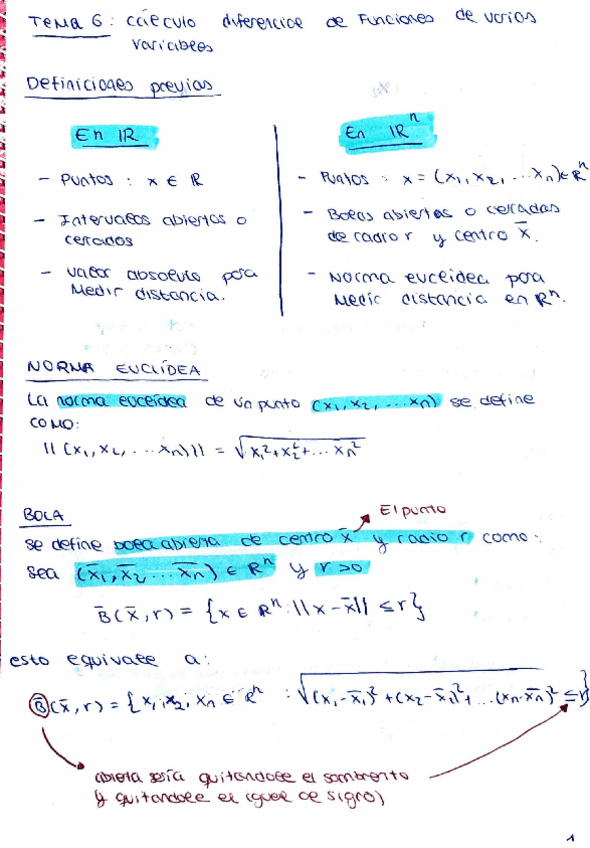 TEMA 6: cálculo diferencial de Funciones de varias
variables
Definiciones previas
En IR
En IRⁿ
- Puntos: x ∈ R
- Intervalos abiertos o
cerrados
- Valor absoluto para
Medir distancia.
- Puntos: x = (x₁, x₂, ... xₙ) ∈ Rⁿ
- Bolas abiertas o cerradas
de radio r y centro x̄.
- Norma euclidea para
Medir distancia en Rⁿ.
NORMA EUCLÍDEA
La norma euclidea de un punto (x₁, x₂, ... xₙ) se define
como:
||(x₁, x₂, ... xₙ)|| = √x₁² + x₂² + ... xₙ²
El punto
BOLA
se define bola abierta de centro x̄ y radio r como:
sea (x̄₁, x̄₂ ... x̄ₙ) ∈ Rⁿ y r > 0
B̄(x̄, r) = {x ∈ Rⁿ: ||x - x̄|| ≤ r}
esto equivale a:
B̄(x̄, r) = {x₁, x₂, xₙ ∈ Rⁿ : √(x₁ - x̄₁)² + (x₂ - x̄₁)² + ... (xₙ - x̄ₙ)² ≤ r}
abierta sería quitandole el sombrerito
y quitandole el igual al signo)
1